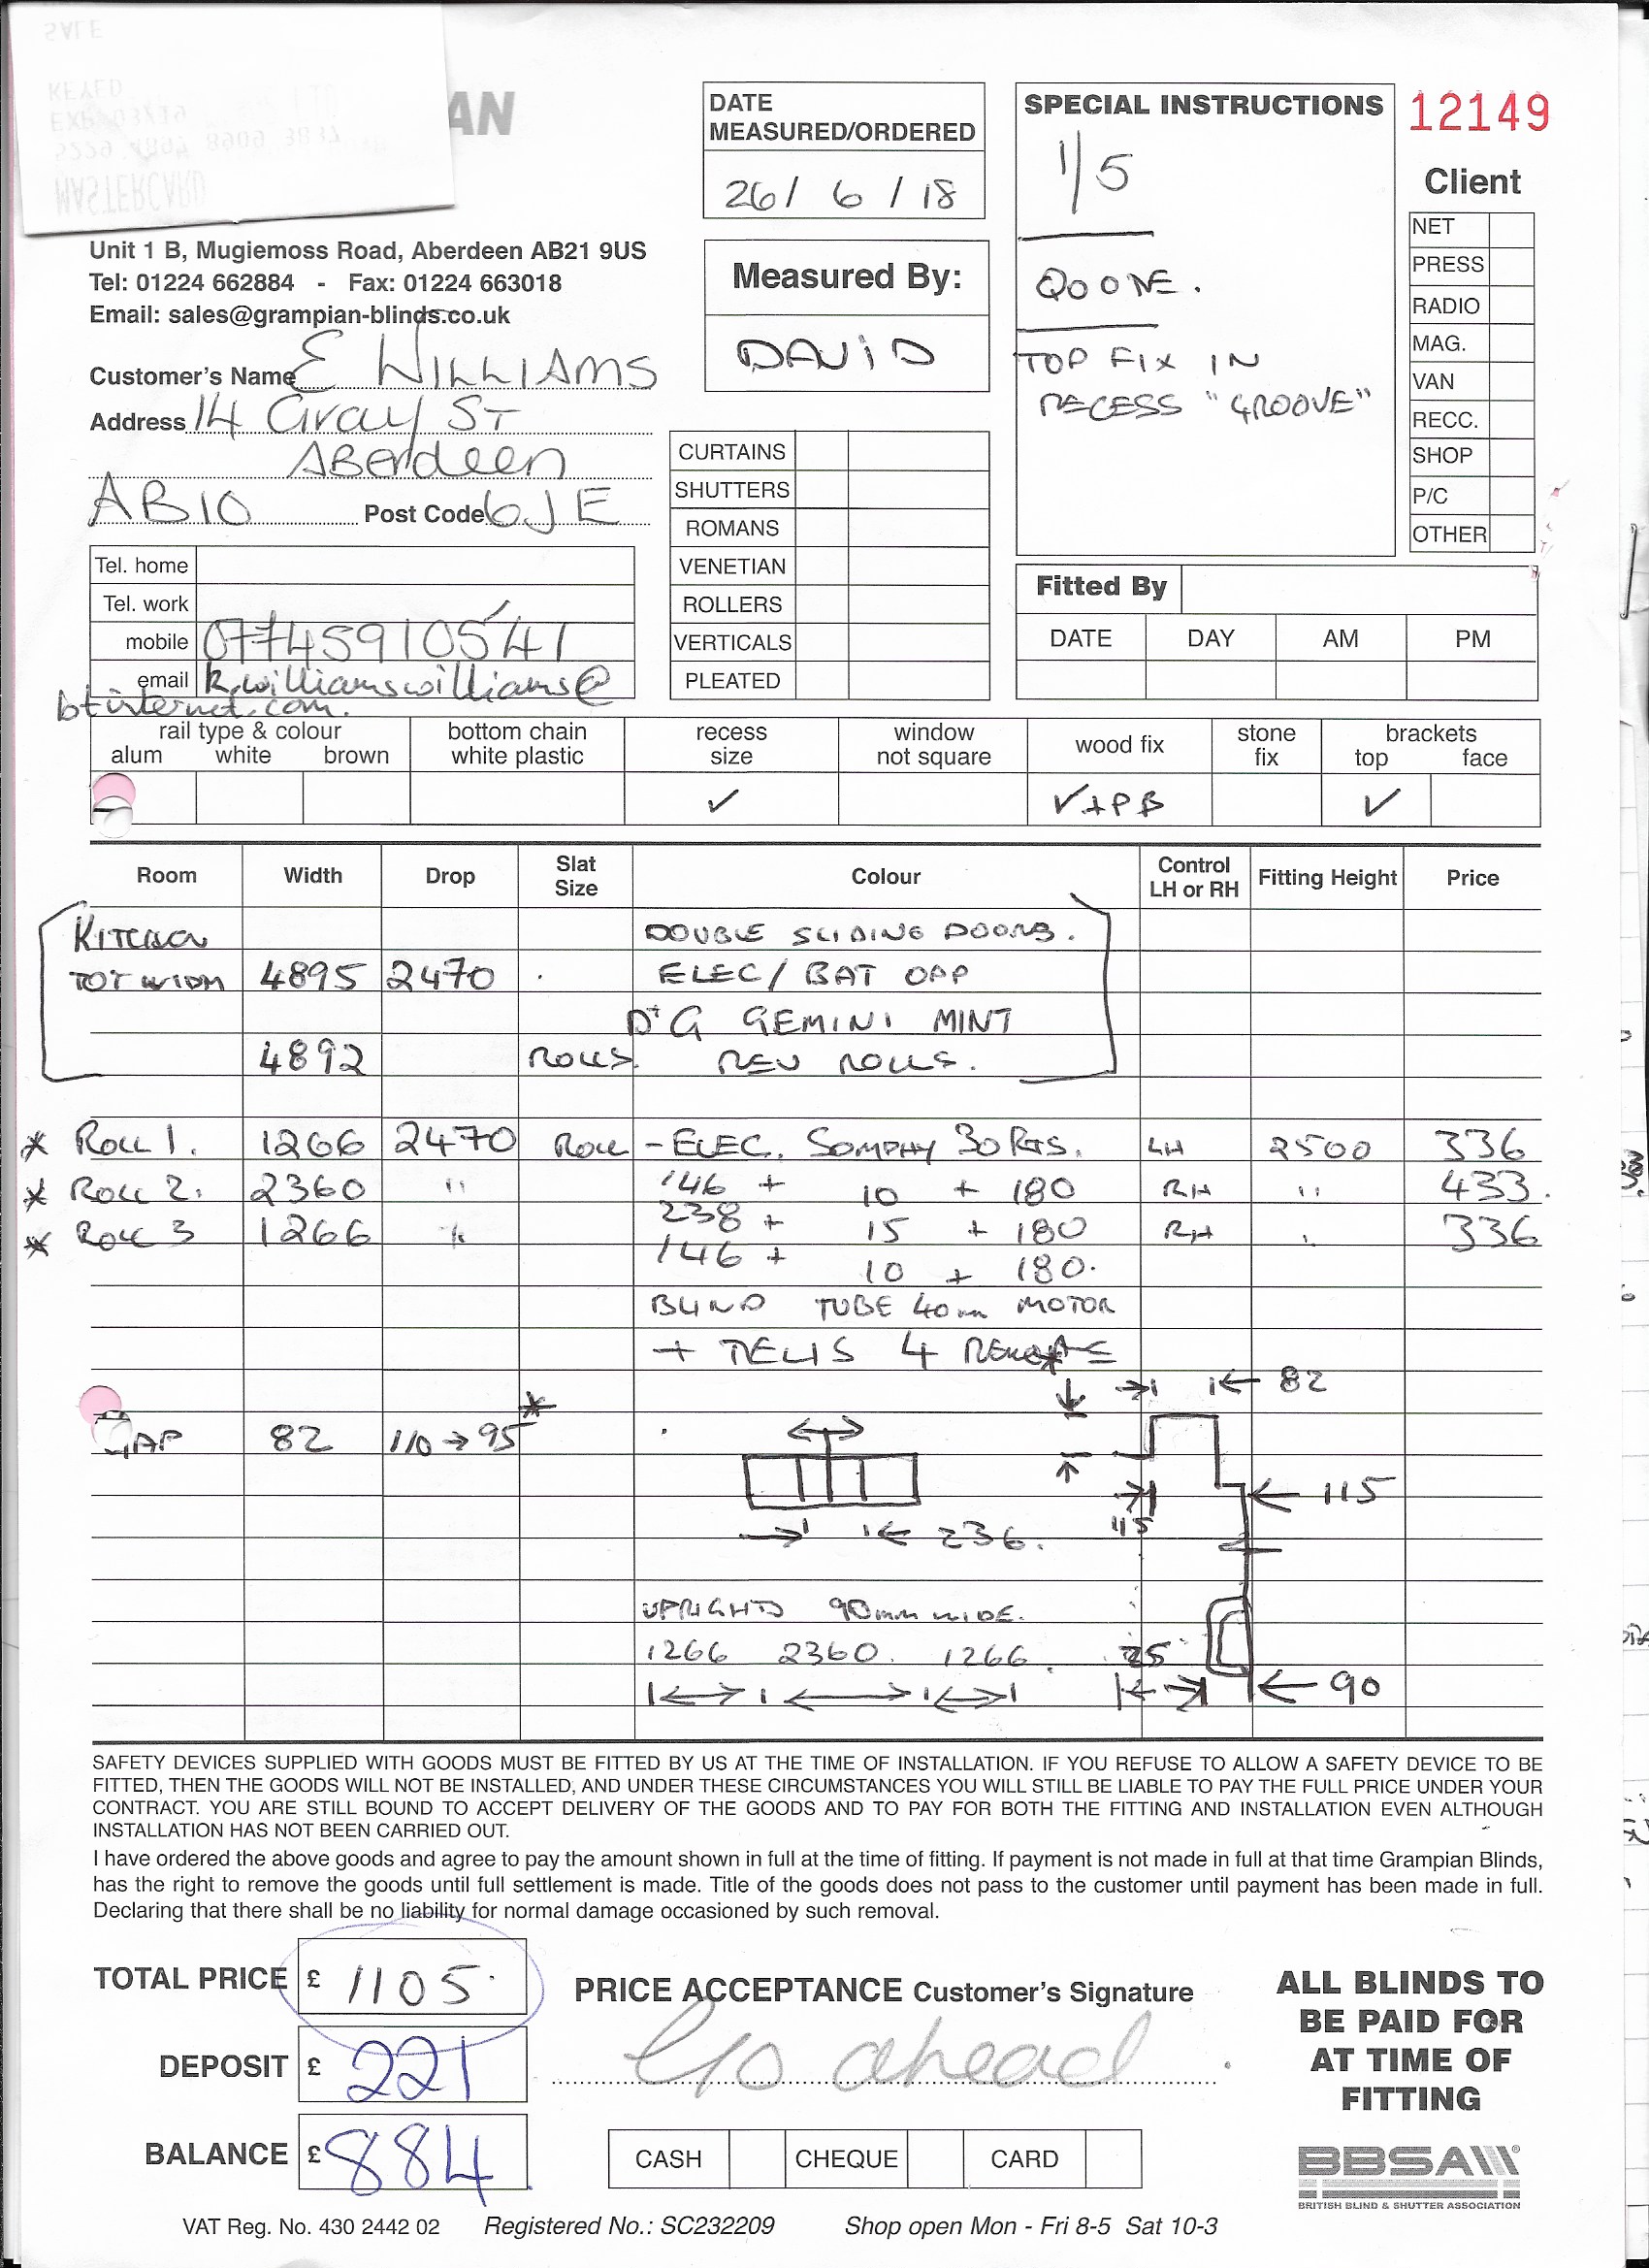 AN
Unit 1 B, Mugiemoss Road, Aberdeen AB21 9US
Tel: 01224 662884 - Fax: 01224 663018
Email: sales@grampian-blinds.co.uk
Customer's Name E WILLIAMS
Address 14 Gray ST
ABerdeen
AB10 Post Code 6JE
Tel. home
Tel. work
mobile 07745910541
email k.williamswilliams@
btinternet.com.
DATE
MEASURED/ORDERED
26/ 6 / 18
Measured By:
DAVID
CURTAINS
SHUTTERS
ROMANS
VENETIAN
ROLLERS
VERTICALS
PLEATED
SPECIAL INSTRUCTIONS
1/5
TOP FIX IN
RECESS "GROOVE"
12149
Client
NET
PRESS
RADIO
MAG.
VAN
RECC.
SHOP
P/C
OTHER
Fitted By
DATE DAY AM PM
rail type & colour bottom chain recess window wood fix stone brackets
alum white brown white plastic size not square fix top face
✓ ✓+PB ✓
Room Width Drop Slat Size Colour Control LH or RH Fitting Height Price
KITCHEN DOUBLE SLIDING DOORS.
TOT WIDTH 4895 2470 ELEC/ BAT OPP
D+G GEMINI MINT
4892 ROLLS. REV ROLLS.
* ROLL 1. 1266 2470 ROLL - ELEC. SOMPHY 30 RTS. LH 2500 336
* ROLL 2. 2360 " 146 + 10 + 180 RH " 433.
* ROLL 3 1266 " 238 + 15 + 180 RH " 336
146 + 10 + 180.
BLIND TUBE 40mm MOTOR
+ TELIS 4 REMOTE
→ ← 82
GAP 82 110 → 95 *
← 115
115
→ ← 236.
UPRIGHTS 90mm WIDE.
1266 2360. 1266.
← 90
SAFETY DEVICES SUPPLIED WITH GOODS MUST BE FITTED BY US AT THE TIME OF INSTALLATION. IF YOU REFUSE TO ALLOW A SAFETY DEVICE TO BE
FITTED, THEN THE GOODS WILL NOT BE INSTALLED, AND UNDER THESE CIRCUMSTANCES YOU WILL STILL BE LIABLE TO PAY THE FULL PRICE UNDER YOUR
CONTRACT. YOU ARE STILL BOUND TO ACCEPT DELIVERY OF THE GOODS AND TO PAY FOR BOTH THE FITTING AND INSTALLATION EVEN ALTHOUGH
INSTALLATION HAS NOT BEEN CARRIED OUT.
I have ordered the above goods and agree to pay the amount shown in full at the time of fitting. If payment is not made in full at that time Grampian Blinds,
has the right to remove the goods until full settlement is made. Title of the goods does not pass to the customer until payment has been made in full.
Declaring that there shall be no liability for normal damage occasioned by such removal.
TOTAL PRICE £ 1105.
DEPOSIT £ 221
BALANCE £ 884
PRICE ACCEPTANCE Customer's Signature
Go ahead
CASH CHEQUE CARD
ALL BLINDS TO
BE PAID FOR
AT TIME OF
FITTING
BBSA
BRITISH BLIND & SHUTTER ASSOCIATION
VAT Reg. No. 430 2442 02 Registered No.: SC232209 Shop open Mon - Fri 8-5 Sat 10-3